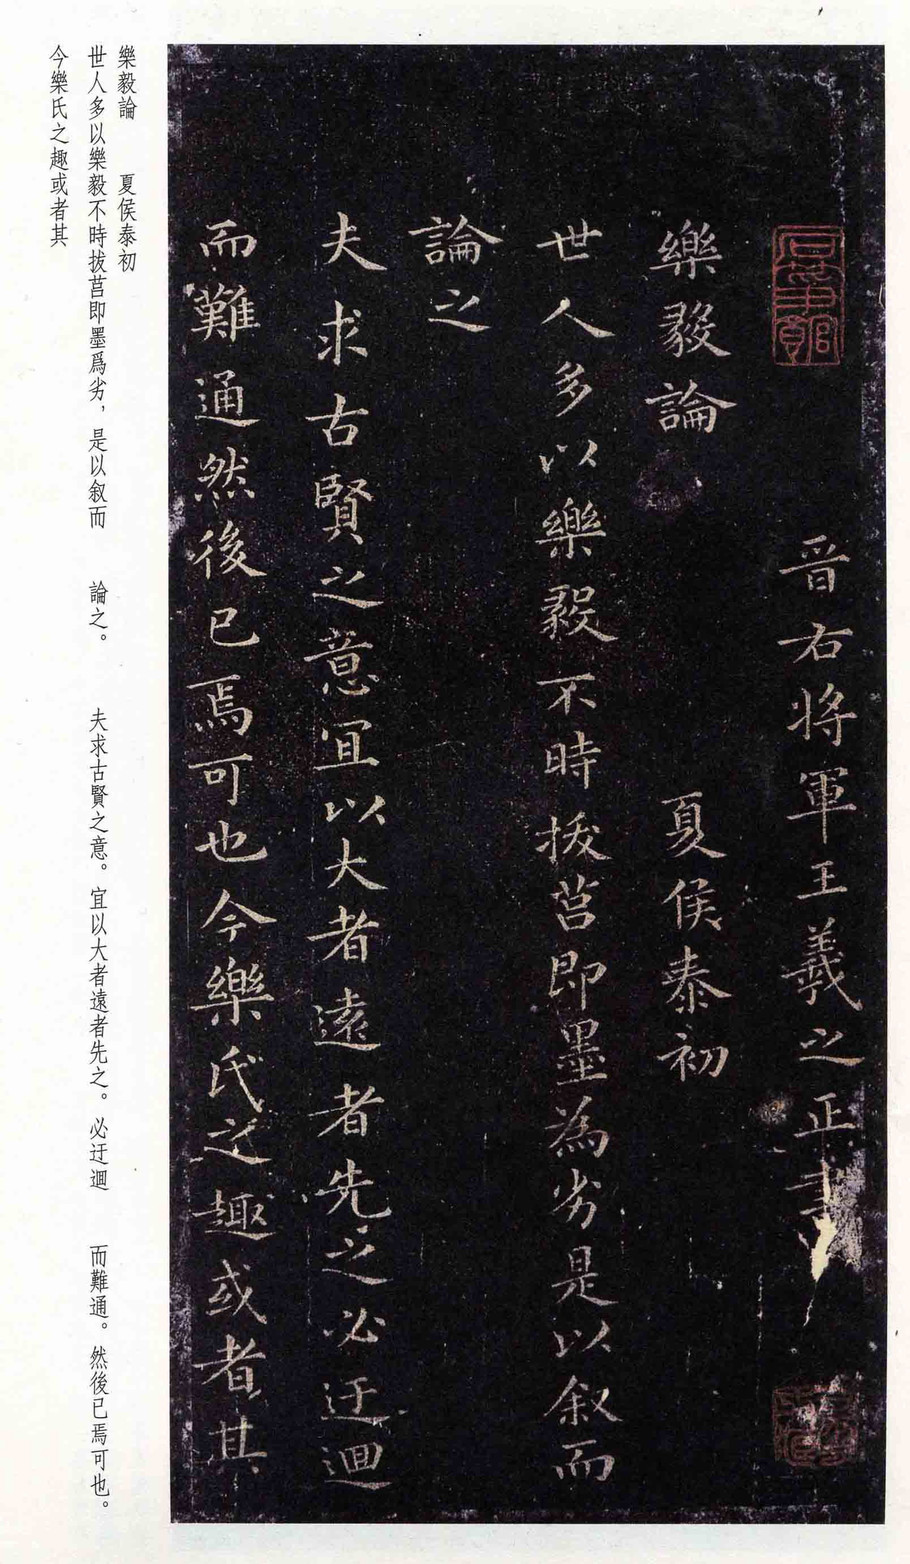 晉右將軍王羲之正書
樂毅論 夏侯泰初
世人多以樂毅不時拔莒即墨為劣是以叙而
論之
夫求古賢之意冝以大者遠者先之必迂迴
而難通然後已焉可也今樂氏之趣或者其
樂毅論 夏侯泰初
世人多以樂毅不時拔莒即墨爲劣,是以叙而 論之。 夫求古賢之意。宜以大者遠者先之。必迂迴 而難通。然後已焉可也。
今樂氏之趣或者其